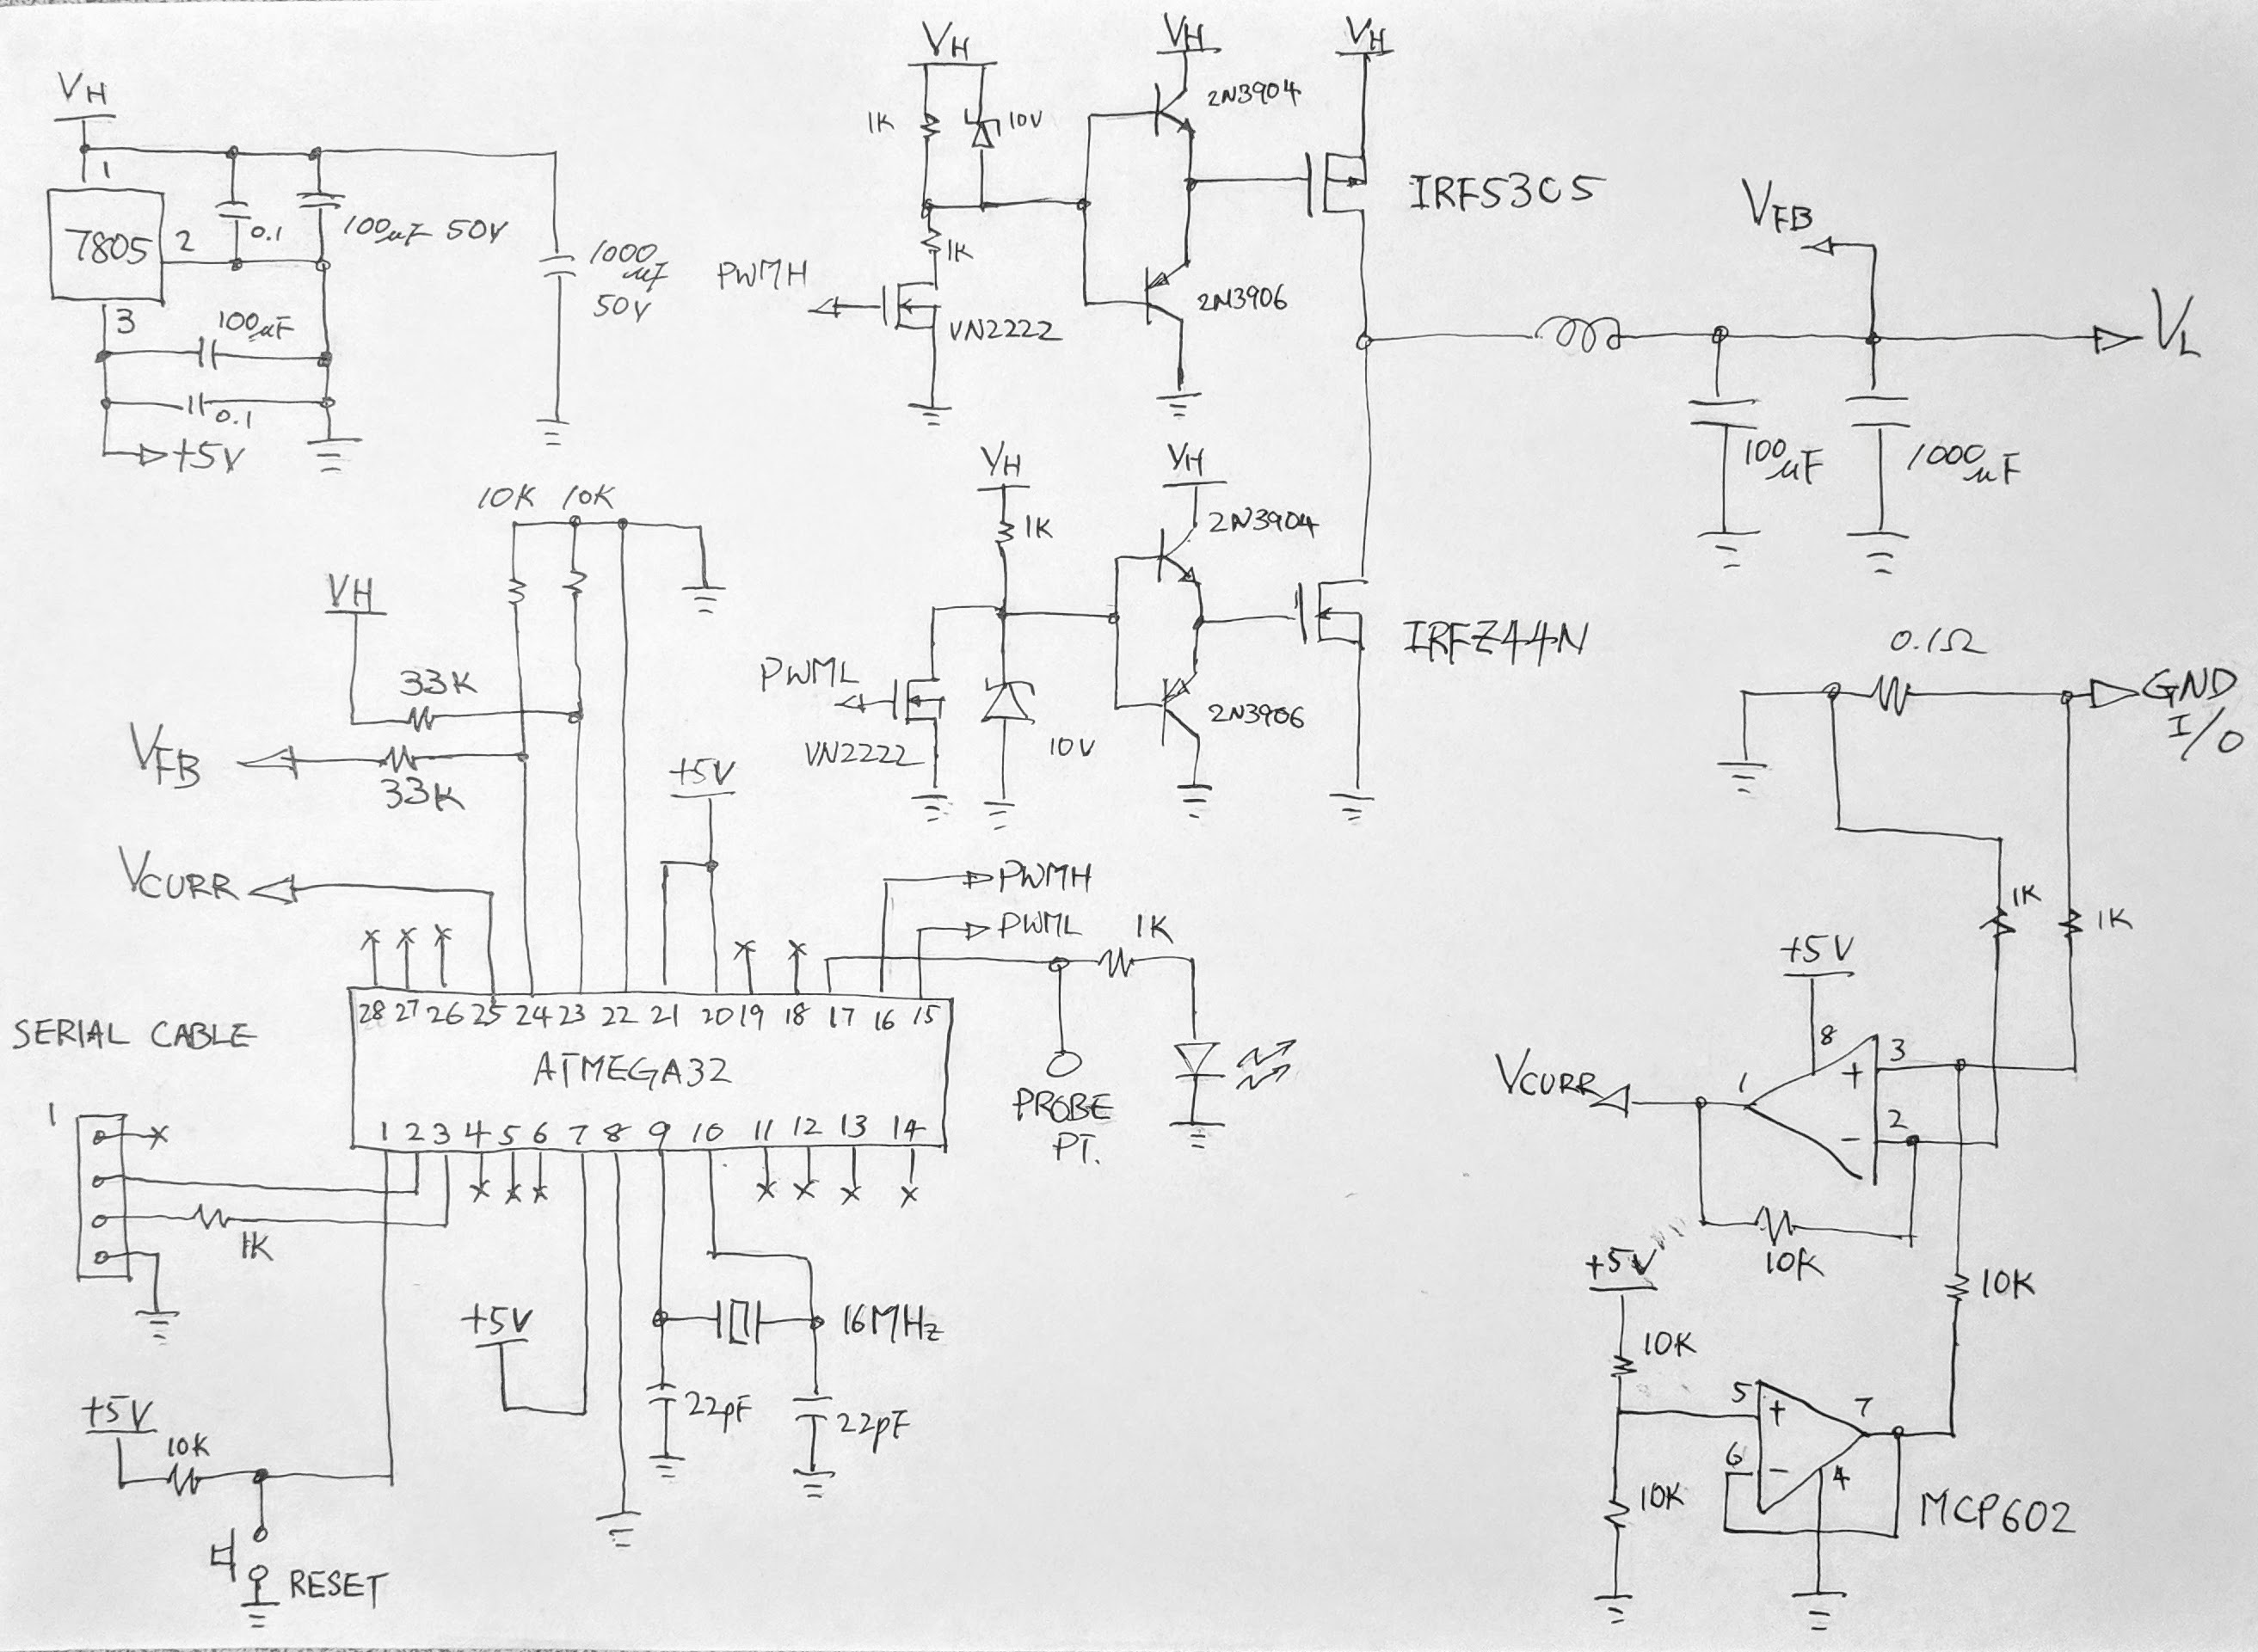 VH
1
7805
2
3
0.1
100µF 50V
1000
µF
50V
100µF
0.1
+5V
VH
1K
10V
1K
PWMH
VN2222
VH
2N3904
2N3906
VH
IRF5305
VFB
VL
100µF
1000µF
VH
1K
PWML
VN2222
10V
VH
2N3904
2N3906
IRFZ44N
10K 10K
VH
33K
VFB
33K
VCURR
+5V
PWMH
PWML
1K
28 27 26 25 24 23 22 21 20 19 18 17 16 15
ATMEGA32
1 2 3 4 5 6 7 8 9 10 11 12 13 14
PROBE
PT.
SERIAL CABLE
1
1K
+5V
16MHz
22pF
22pF
+5V
10K
RESET
0.1Ω
GND
I/O
1K
1K
+5V
8
3
+
VCURR
1
2
-
10K
10K
+5V
10K
5
+
7
6
-
4
10K
MCP602